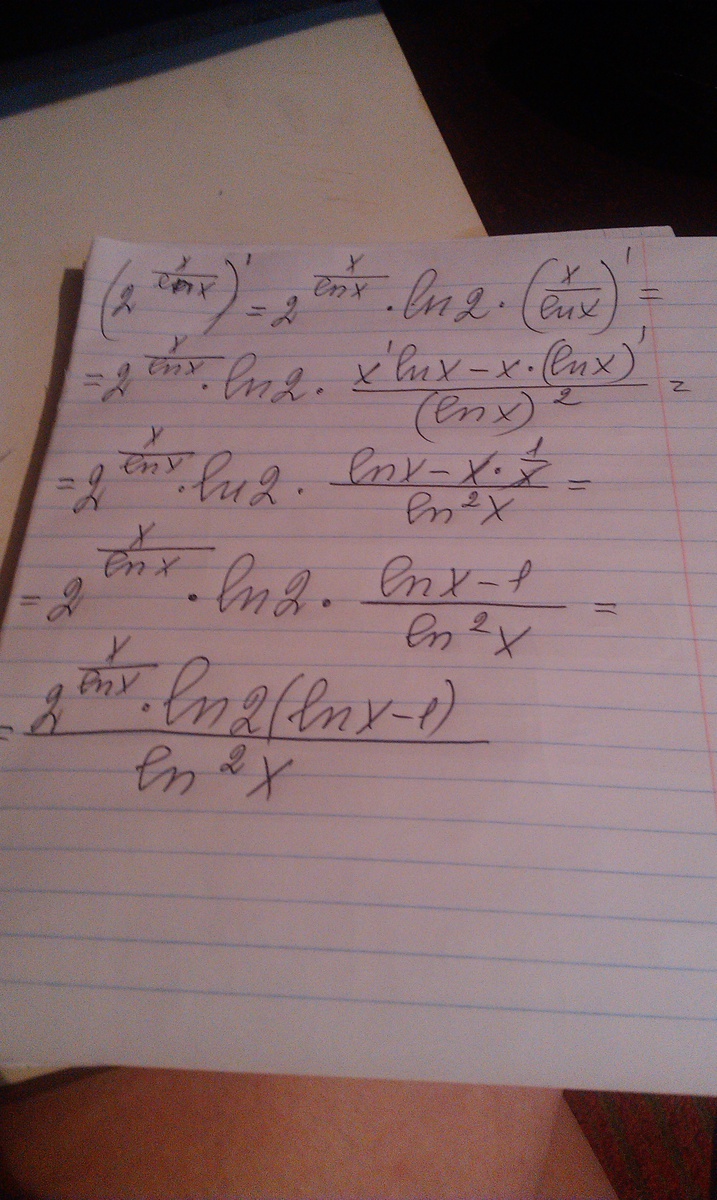 (2^(x/ln x))' = 2^(x/ln x) · ln2 · (x/ln x)' =
= 2^(x/ln x) · ln2 · (x' ln x - x · (ln x)')/(ln x)^2 =
= 2^(x/ln x) · ln2 · (ln x - x · 1/x)/(ln^2 x) =
= 2^(x/ln x) · ln2 · (ln x - 1)/(ln^2 x) =
= (2^(x/ln x) · ln2(ln x - 1))/(ln^2 x)